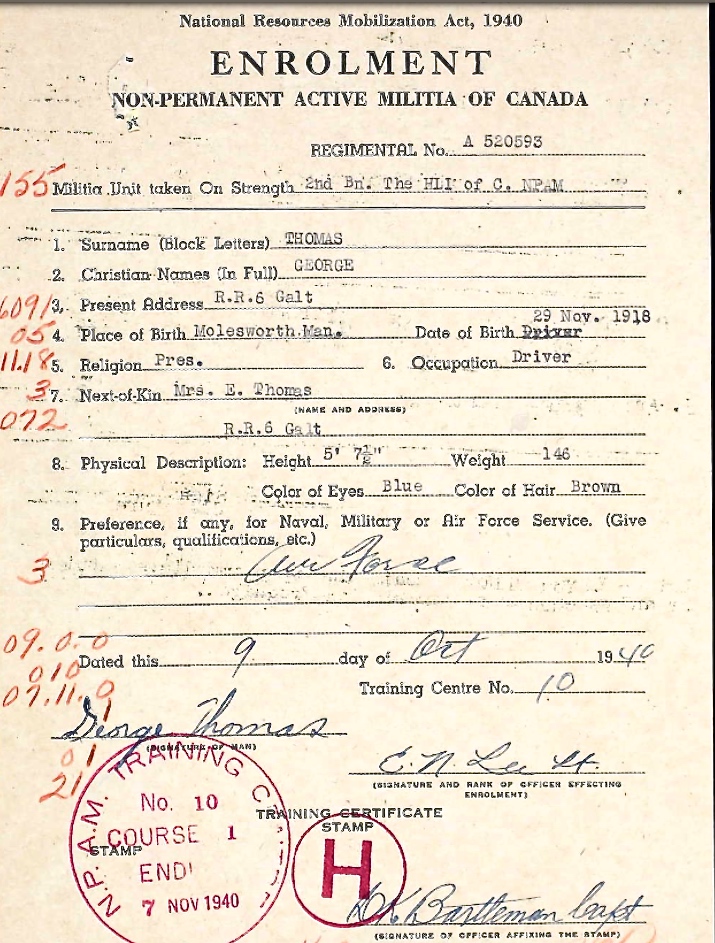 National Resources Mobilization Act, 1940
ENROLMENT
NON-PERMANENT ACTIVE MILITIA OF CANADA
REGIMENTAL No. A 520593
155 Militia Unit taken On Strength 2nd Bn. The HLI of C. NPAM
1. Surname (Block Letters) THOMAS
2. Christian Names (In Full) GEORGE
6091 3. Present Address R.R.6 Galt
29 Nov. 1918
05 4. Place of Birth Molesworth Man. Date of Birth Driver
11.18 5. Religion Pres. 6. Occupation Driver
3 7. Next-of-Kin Mrs. E. Thomas
(NAME AND ADDRESS)
072
R.R.6 Galt
8. Physical Description: Height 5' 7½" Weight 146
Color of Eyes Blue Color of Hair Brown
9. Preference, if any, for Naval, Military or Air Force Service. (Give
particulars, qualifications, etc.)
3 Air Force
09.0.0
Dated this 9 day of Oct 1940
010
Training Centre No. 10
07.11.0
1
George Thomas
(SIGNATURE OF MAN)
01
E. N. Lee Lt.
21
(SIGNATURE AND RANK OF OFFICER EFFECTING
ENROLMENT)
N.P.A.M. TRAINING C
No. 10
COURSE 1
END
7 NOV 1940
STAMP
TRAINING CERTIFICATE
STAMP
H
Bartleman Capt
(SIGNATURE OF OFFICER AFFIXING THE STAMP)